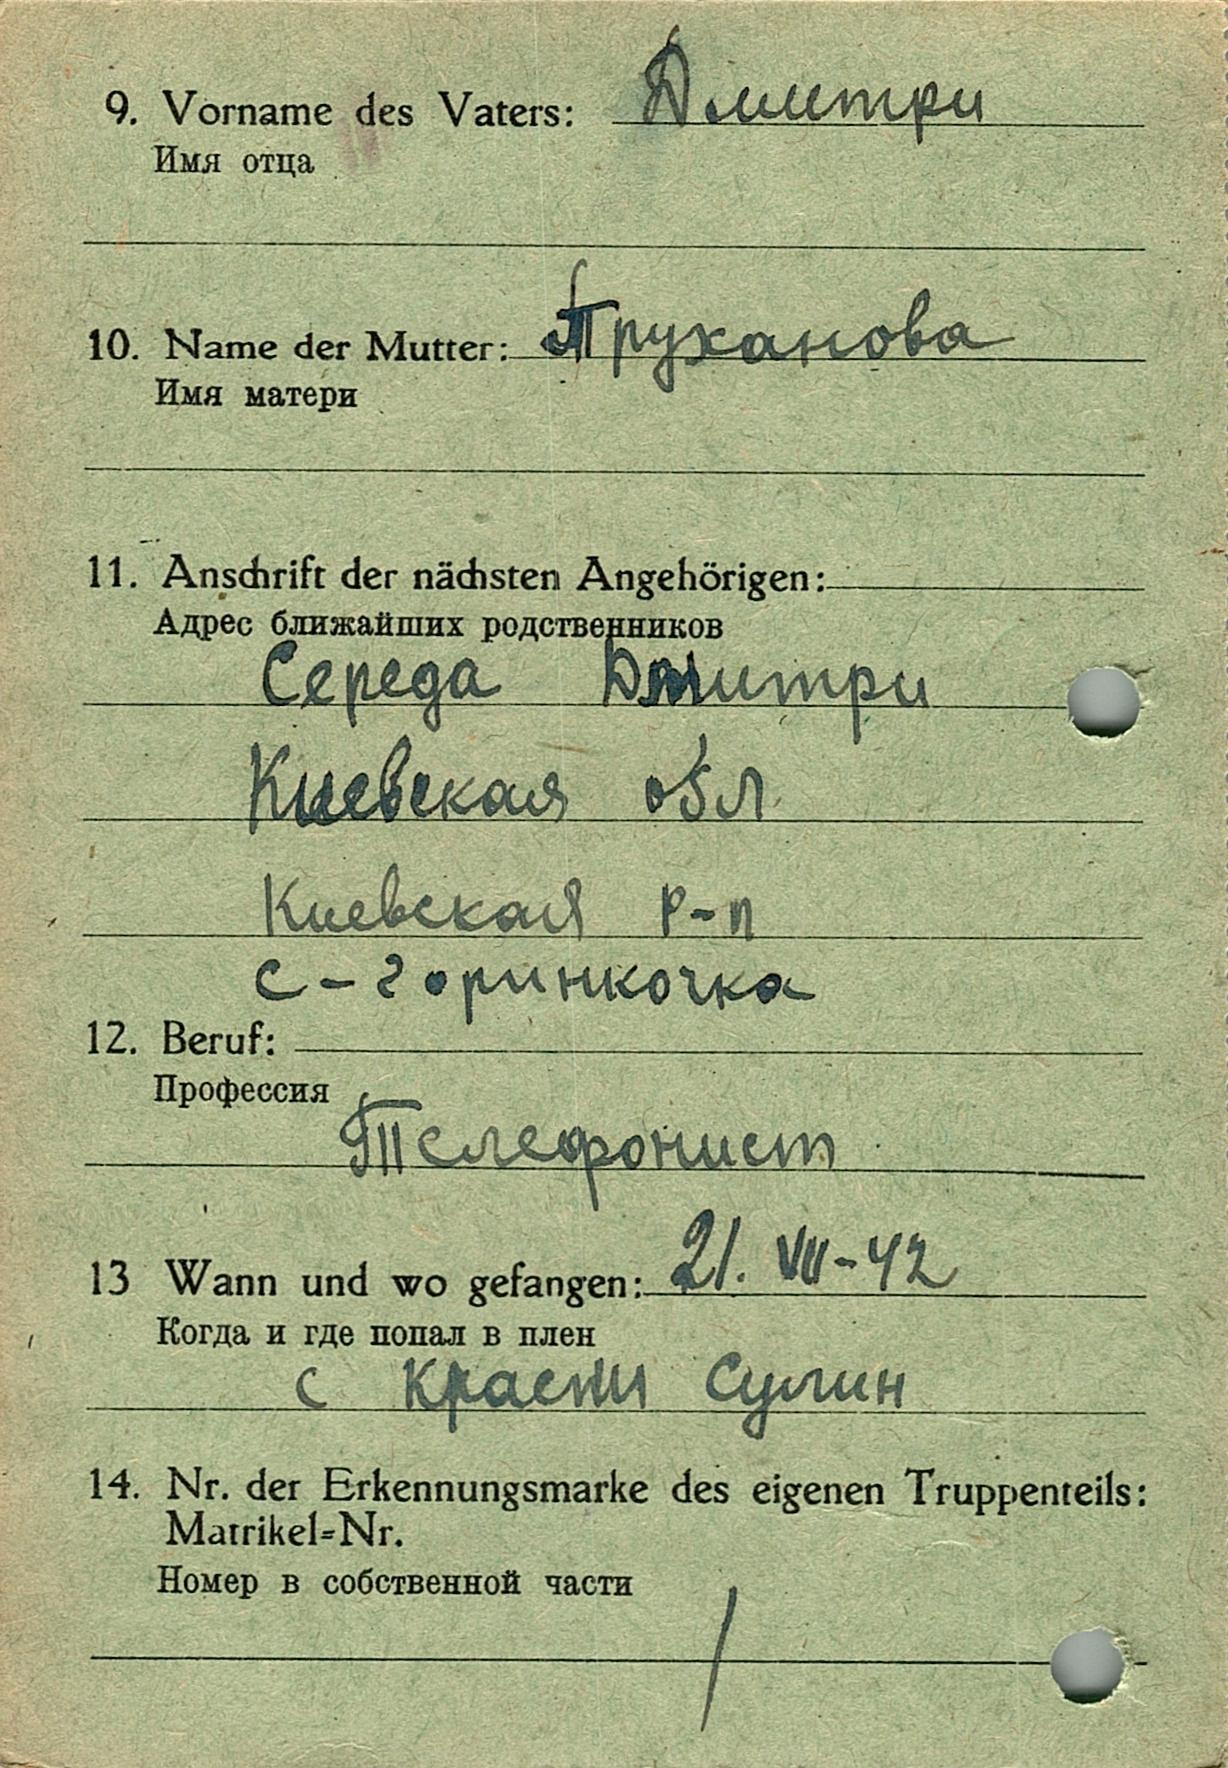 9. Vorname des Vaters: Дмитри
Имя отца
10. Name der Mutter: Труханова
Имя матери
11. Anschrift der nächsten Angehörigen:
Адрес ближайших родственников
Середа Дмитри
Киевская обл
Киевская р-н
с-горинкочка
12. Beruf:
Профессия
Телефонист
13 Wann und wo gefangen: 21. VII-42
Когда и где попал в плен
с Красни Сулин
14. Nr. der Erkennungsmarke des eigenen Truppenteils:
Matrikel=Nr.
Номер в собственной части
/